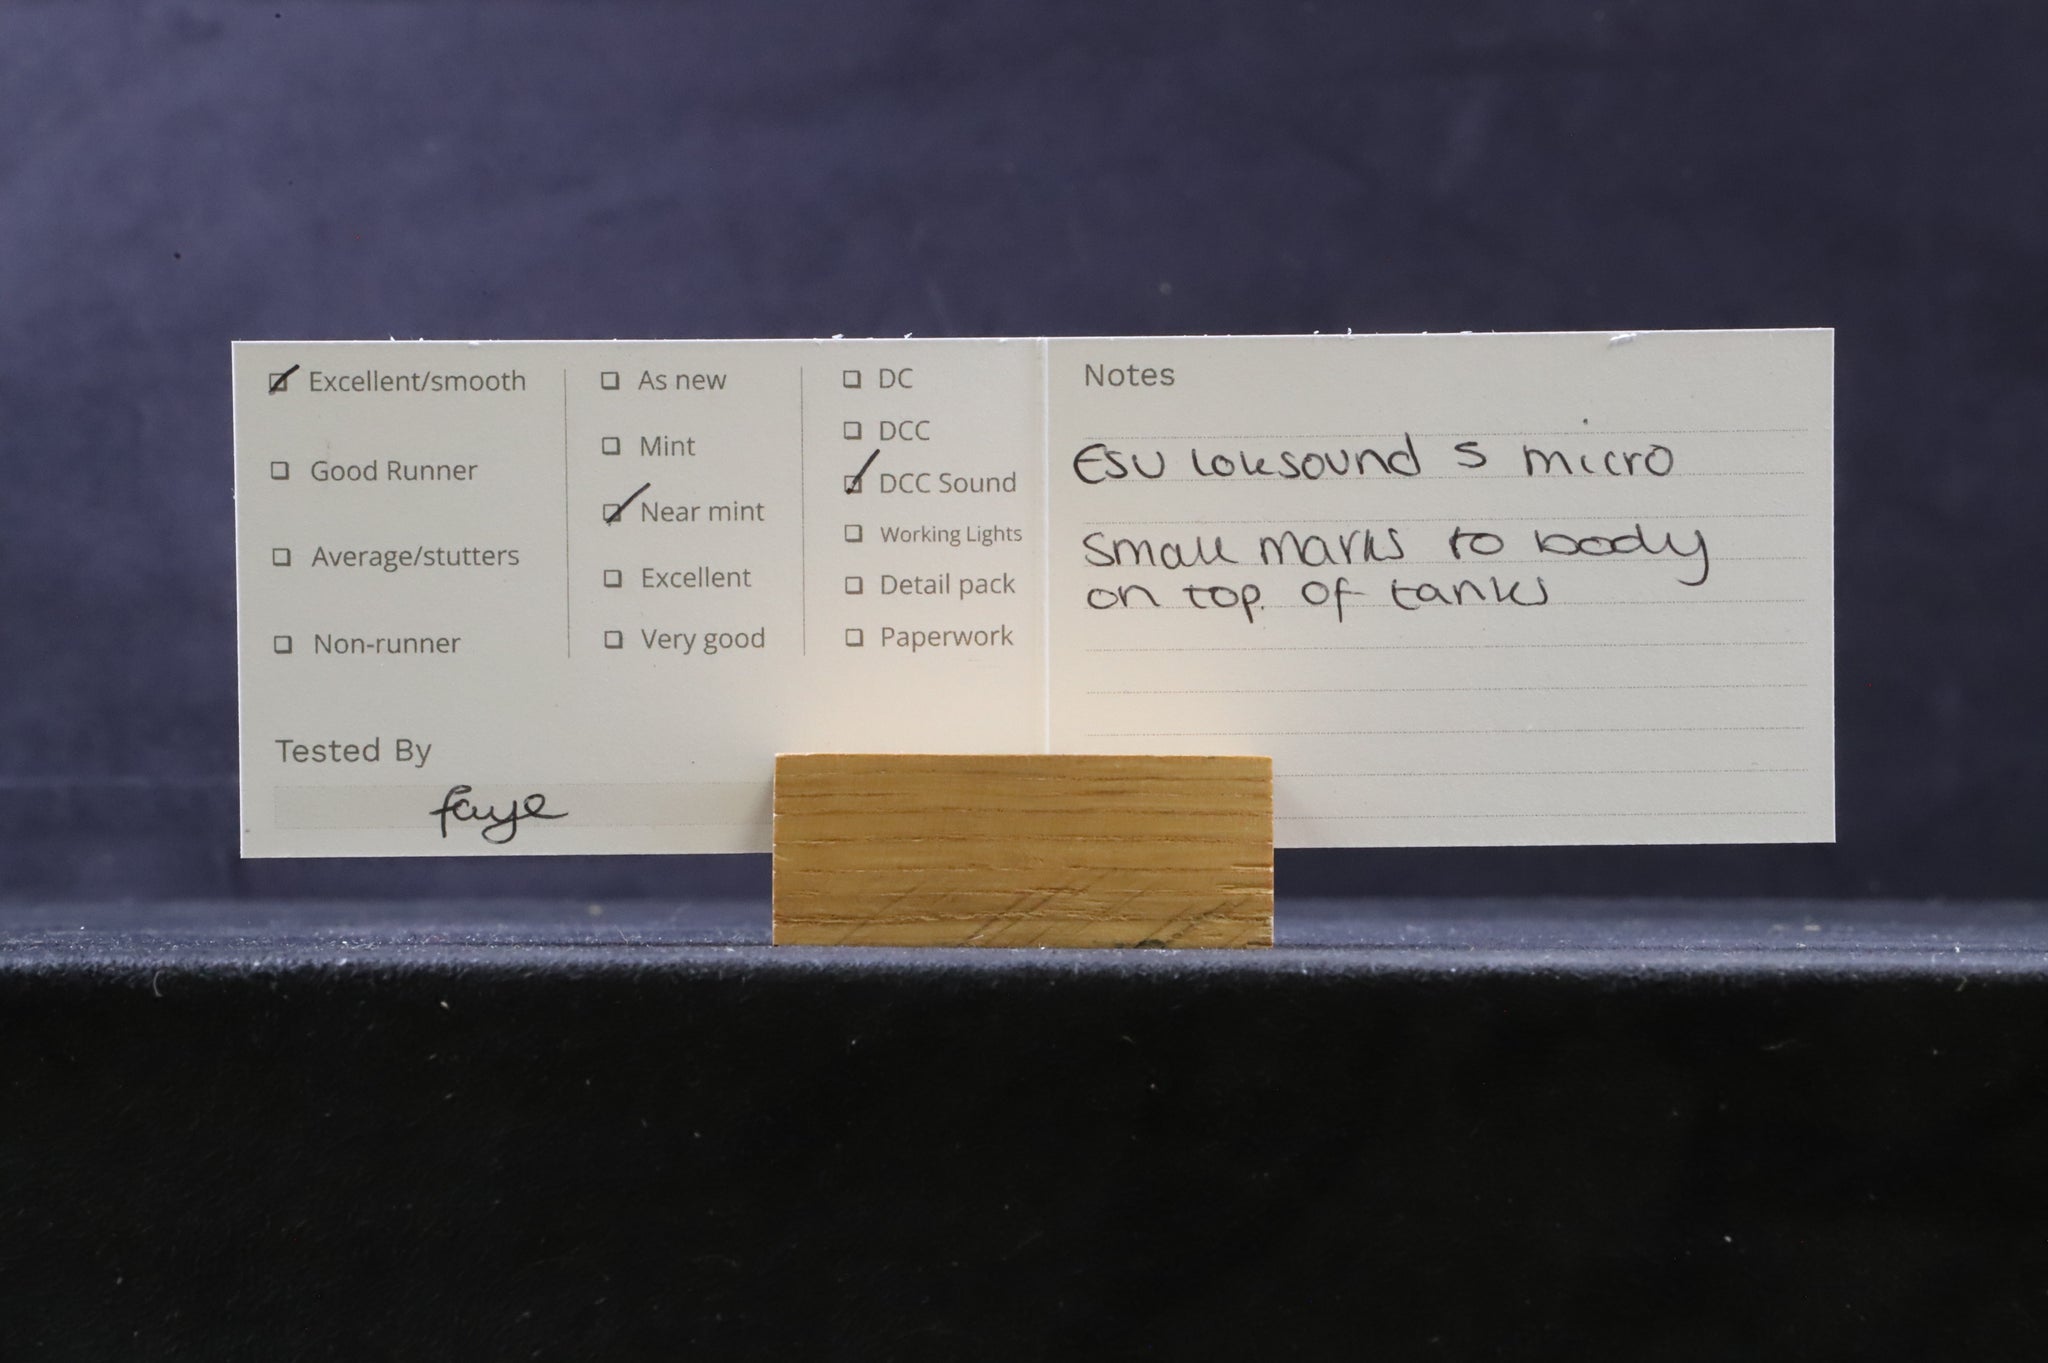 Excellent/smooth
Good Runner
Average/stutters
Non-runner
As new
Mint
Near mint
Excellent
Very good
DC
DCC
DCC Sound
Working Lights
Detail pack
Paperwork
Tested By
faye
Notes
ESU loksound 5 micro
Small marks to body
on top of tanks